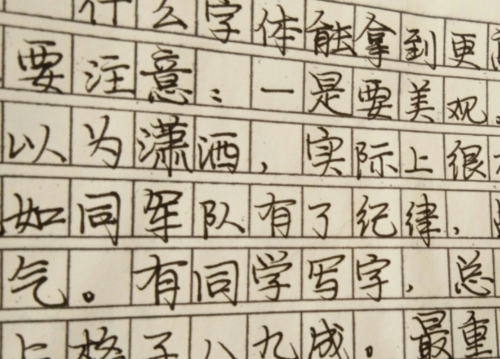 什么字体能拿到更高
要注意：一是要美观。
以为潇洒，实际上很
如同军队有了纪律，
气。有同学写字，总
占格子八九成。最重